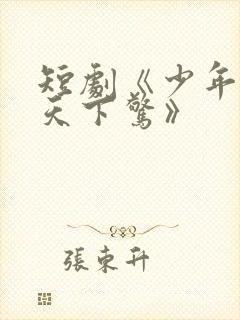 短劇《少年
天下驚》
張東升